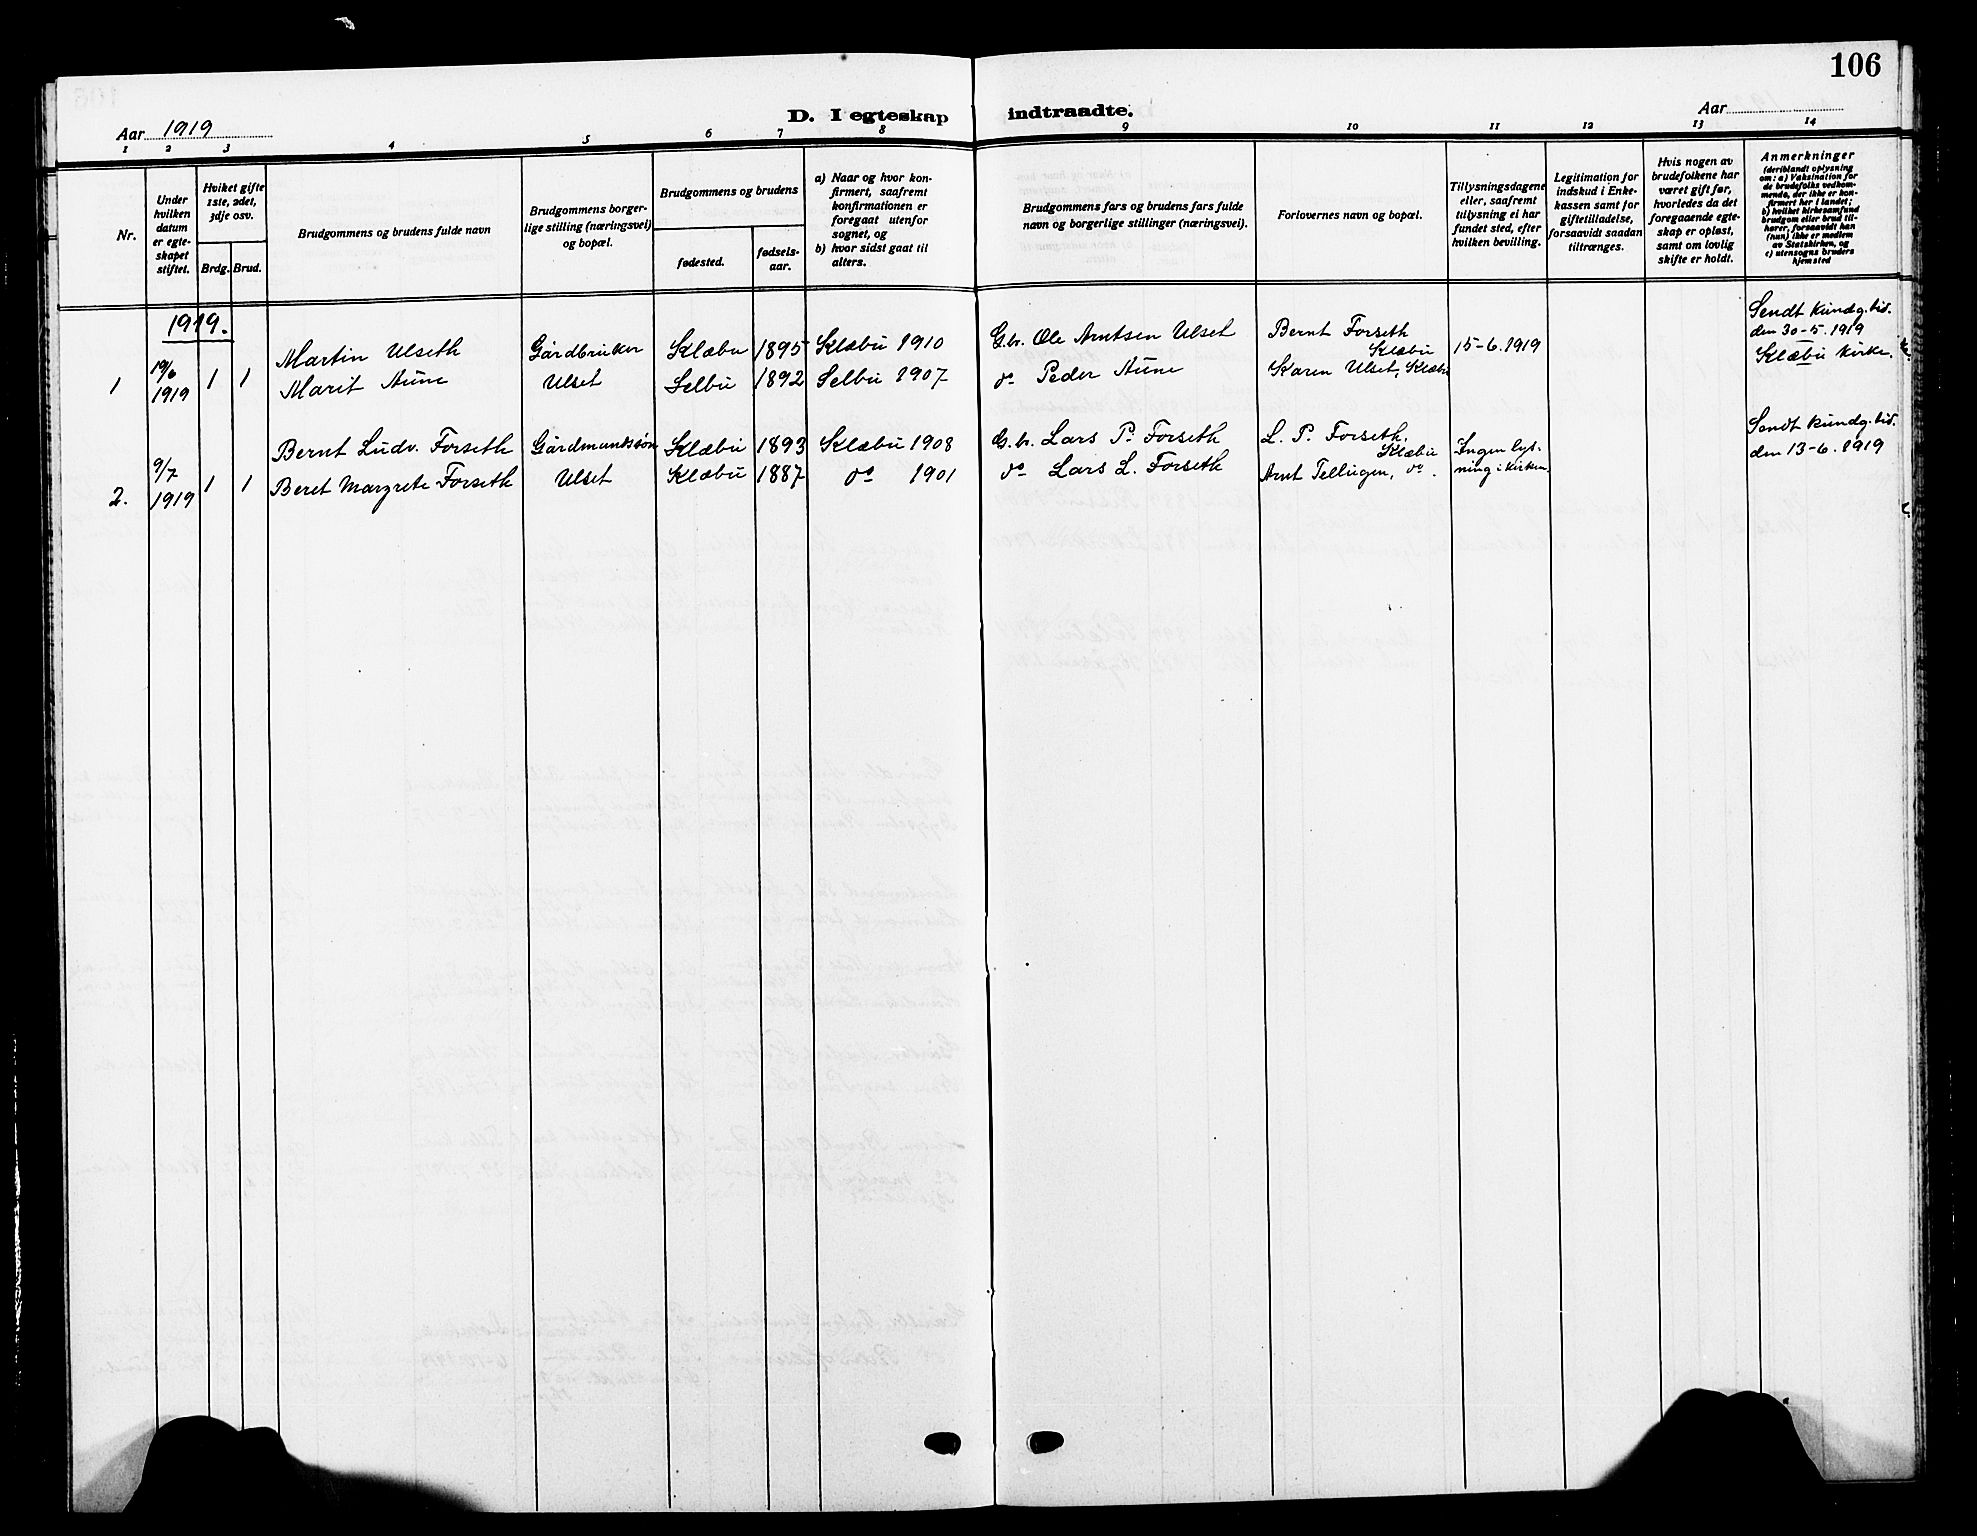 106
D. I egteskap indtraadte.
Aar 1919
Aar
1 2 3 4 5 6 7 8 9 10 11 12 13 14
Nr.
Under hvilken datum er egteskapet stiftet.
Hviket gifte 1ste, 2det, 3dje osv.
Brdg. Brud.
Brudgommens og brudens fulde navn
Brudgommens borgerlige stilling (næringsvei) og bopæl.
Brudgommens og brudens
fødested.
fødselsaar.
a) Naar og hvor konfirmert, saafremt konfirmationen er foregaat utenfor sognet, og
b) hvor sidst gaat til alters.
Brudgommens fars og brudens fars fulde navn og borgerlige stillinger (næringsvei).
Forlovernes navn og bopæl.
Tillysningsdagene eller, saafremt tillysning ei har fundet sted, efter hvilken bevilling.
Legitimation for indskud i Enkekassen samt for giftetilladelse, forsaavidt saadan tiltrænges.
Hvis nogen av brudefolkene har været gift før, hvorledes da det foregaaende egteskap er opløst, samt om lovlig skifte er holdt.
Anmerkninger (deriblandt oplysning om: a) Vaksination for de brudefolks vedkommende, der ikke er konfirmert her i landet; b) hvilket kirkesamfund brudgom eller brud tilhører, forsaavidt han (hun) ikke er medlem av Statskirken, og c) utensogns bruders hjemsted
1919.
1 19/6 1919 1 1
Martin Ulseth Gårdbruker Klæbu 1895 Klæbu 1910 G.br. Ole Arntsen Ulset Bernt Forseth Klæbu 15-6.1919 Sendt kundg.tid. den 30-5.1919
Marit Aune Ulset Selbu 1892 Selbu 1907 do Peder Aune Karen Ulset, Klæbu Klæbu kirke.
2. 9/7 1919 1 1
Bernt Ludv. Forseth Gårdmandssøn Klæbu 1893 Klæbu 1908 G.br. Lars P. Forseth L. P. Forseth, Klæbu Ingen lysning i kirken Sendt kundg.tid. den 13-6.1919
Beret Margrete Forseth Ulset Klæbu 1887 do 1901 do Lars L. Forseth Arnt Tellugen, do.